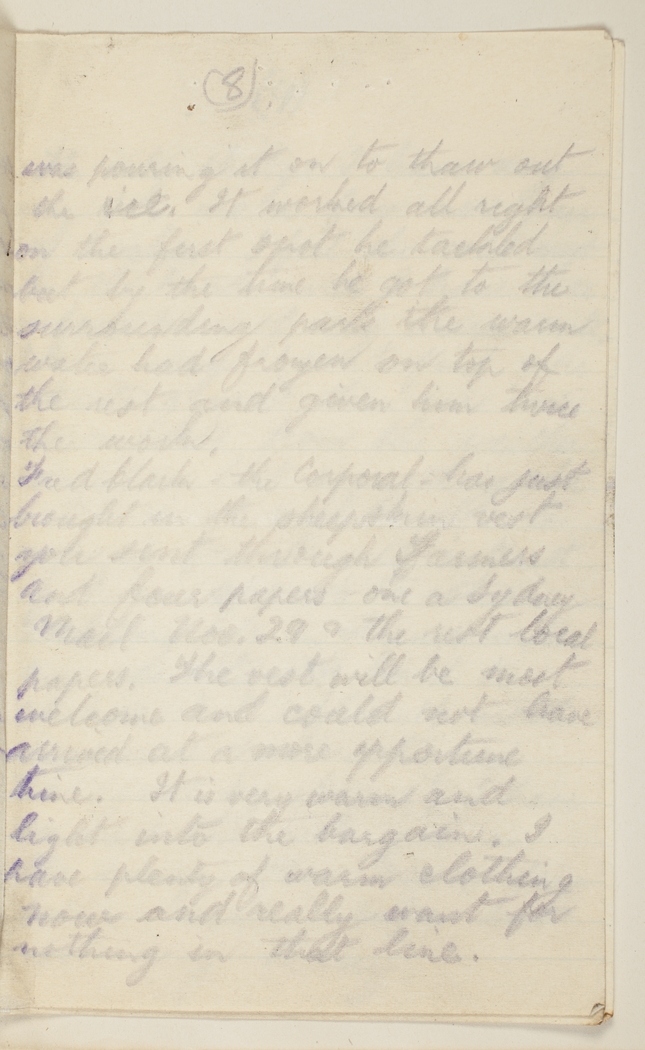 (8).
was pouring it on to thaw out
the ice. It worked all right
on the first spot he tackled
but by the time he got to the
surrounding parts the warm
water had frozen on top of
the rest and given him twice
the work.
Fred Clark - the Corporal - has just
brought in the sheepskin vest
you sent through Farmers
and four papers - one a Sydney
Mail Nov. 29 & the rest local
papers. The vest will be most
welcome and could not have
arrived at a more opportune
time. It is very warm and
light into the bargain. I
have plenty of warm clothing
now and really want for
nothing in that line.